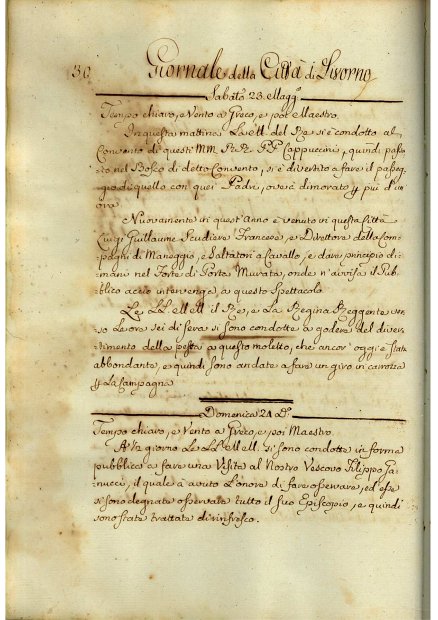 30 Giornale della Città di Livorno
Sabato 23 Magg.
Tempo chiaro, e Vento a Greco, e poi Maestro.
In questa mattina La M. del Re si è condotto al
Convento di questi MM. RR. PP. Cappuccini, quindi pass
nel Bosco di detto Convento, si è divertito a fare il passeg
gio di quello con quei Padri, ove è dimorato p più d'un
ora
Nuovamente in quest'Anno è venuto in questa Città
Luigi Guillaume Scudiere Francese, e Direttore della Com
pagni di Maneggio, e Saltatori a Cavallo, e dare principio di
mani nel Forte di Porta Murata, onde n'avvisa il Pub
blico acciò intervenga, a questo Spettacolo.
Le LL. MM. il Re, e La Regina Reggente ver
so Le ore sei di sera si sono condotte a godere del diver
timento della pesca a questo moletto, che ancor oggi è stata
abbondante, e quindi sono andate a fare un giro in carrozza
p La Campagna
Domenica 24 D.
Tempo chiaro, e Vento a Greco, e poi Maestro.
A ½ giorno Le LL. MM. si sono condotte in forma
pubblica a fare una Visita al Nostro Vescovo Filippo Ga
nucci, il quale à avuto L'onore di fare osservare, ed esse
si sono degnate osservare tutto il suo Episcopio, e quindi
sono state trattate di rinfresco.